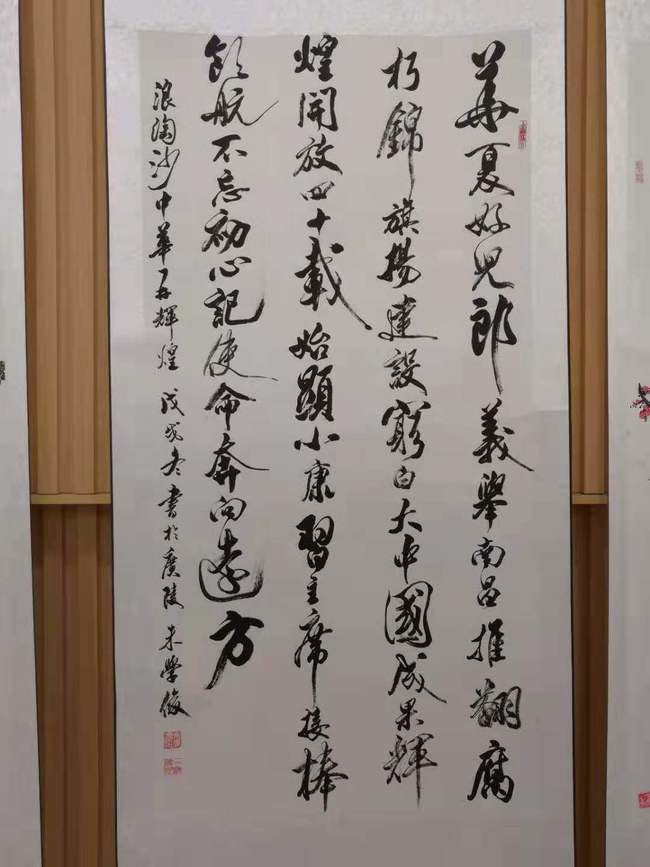 華夏好兒郎義舉南昌推翻腐
朽錦旗揚建設窮白大中國成果輝
煌開放四十載始顯小康習主席接棒
領航不忘初心記使命奔向遠方
浪淘沙中華再輝煌 戊戌冬書於廣陵朱學俊